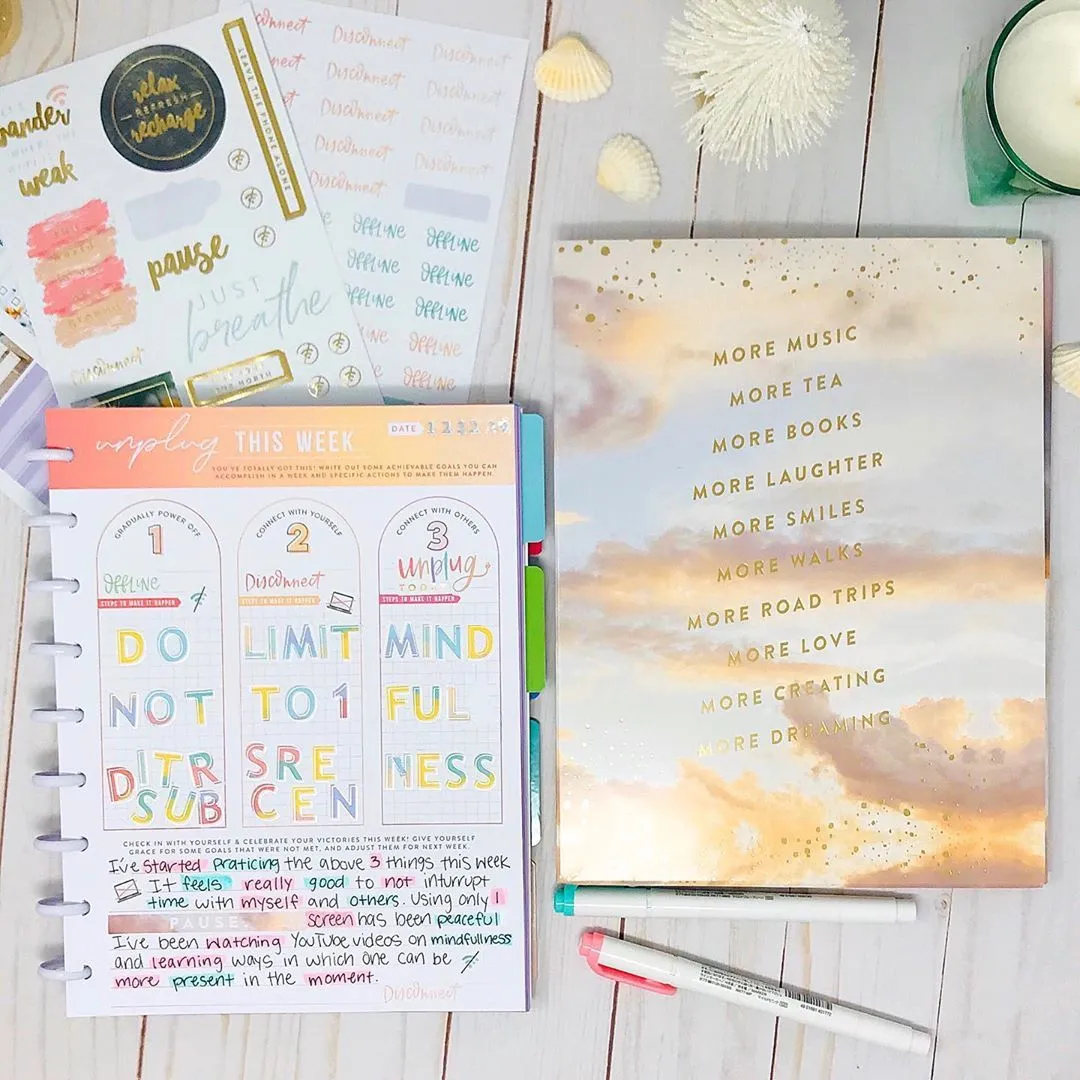 wander
weak
relax
REFRESH
recharge
LEAVE THE PHONE ALONE
pause
JUST
breathe
Disconnect
Disconnect
Disconnect
Disconnect
Disconnect
Disconnect
Disconnect
Disconnect
Disconnect
OFFLINE
OFFLINE
OFFLINE
OFFLINE
OFFLINE
OFFLINE
OFFLINE
OFFLINE
unplug THIS WEEK
DATE
YOU'VE TOTALLY GOT THIS! WRITE OUT SOME ACHIEVABLE GOALS YOU CAN
ACCOMPLISH IN A WEEK AND SPECIFIC ACTIONS TO MAKE THEM HAPPEN.
GRADUALLY POWER OFF
1
OFFLINE
STEPS TO MAKE IT HAPPEN
DO
NOT
DITR
SUB
CONNECT WITH YOURSELF
2
Disconnect
STEPS TO MAKE IT HAPPEN
LIMIT
TO 1
SRE
CEN
CONNECT WITH OTHERS
3
unplug
STEPS TO MAKE IT HAPPEN
MIND
FUL
NESS
CHECK IN WITH YOURSELF & CELEBRATE YOUR VICTORIES THIS WEEK! GIVE YOURSELF
GRACE FOR SOME GOALS THAT WERE NOT MET, AND ADJUST THEM FOR NEXT WEEK.
I've Started Praticing the above 3 things this week
It feels really good to not inturrupt
time with myself and others. Using only 1
PAUSE. screen has been peaceful
I've been watching YouTube videos on mindfullness
and learning ways in which one can be
more present in the moment.
Disconnect
MORE MUSIC
MORE TEA
MORE BOOKS
MORE LAUGHTER
MORE SMILES
MORE WALKS
MORE ROAD TRIPS
MORE LOVE
MORE CREATING
MORE DREAMING